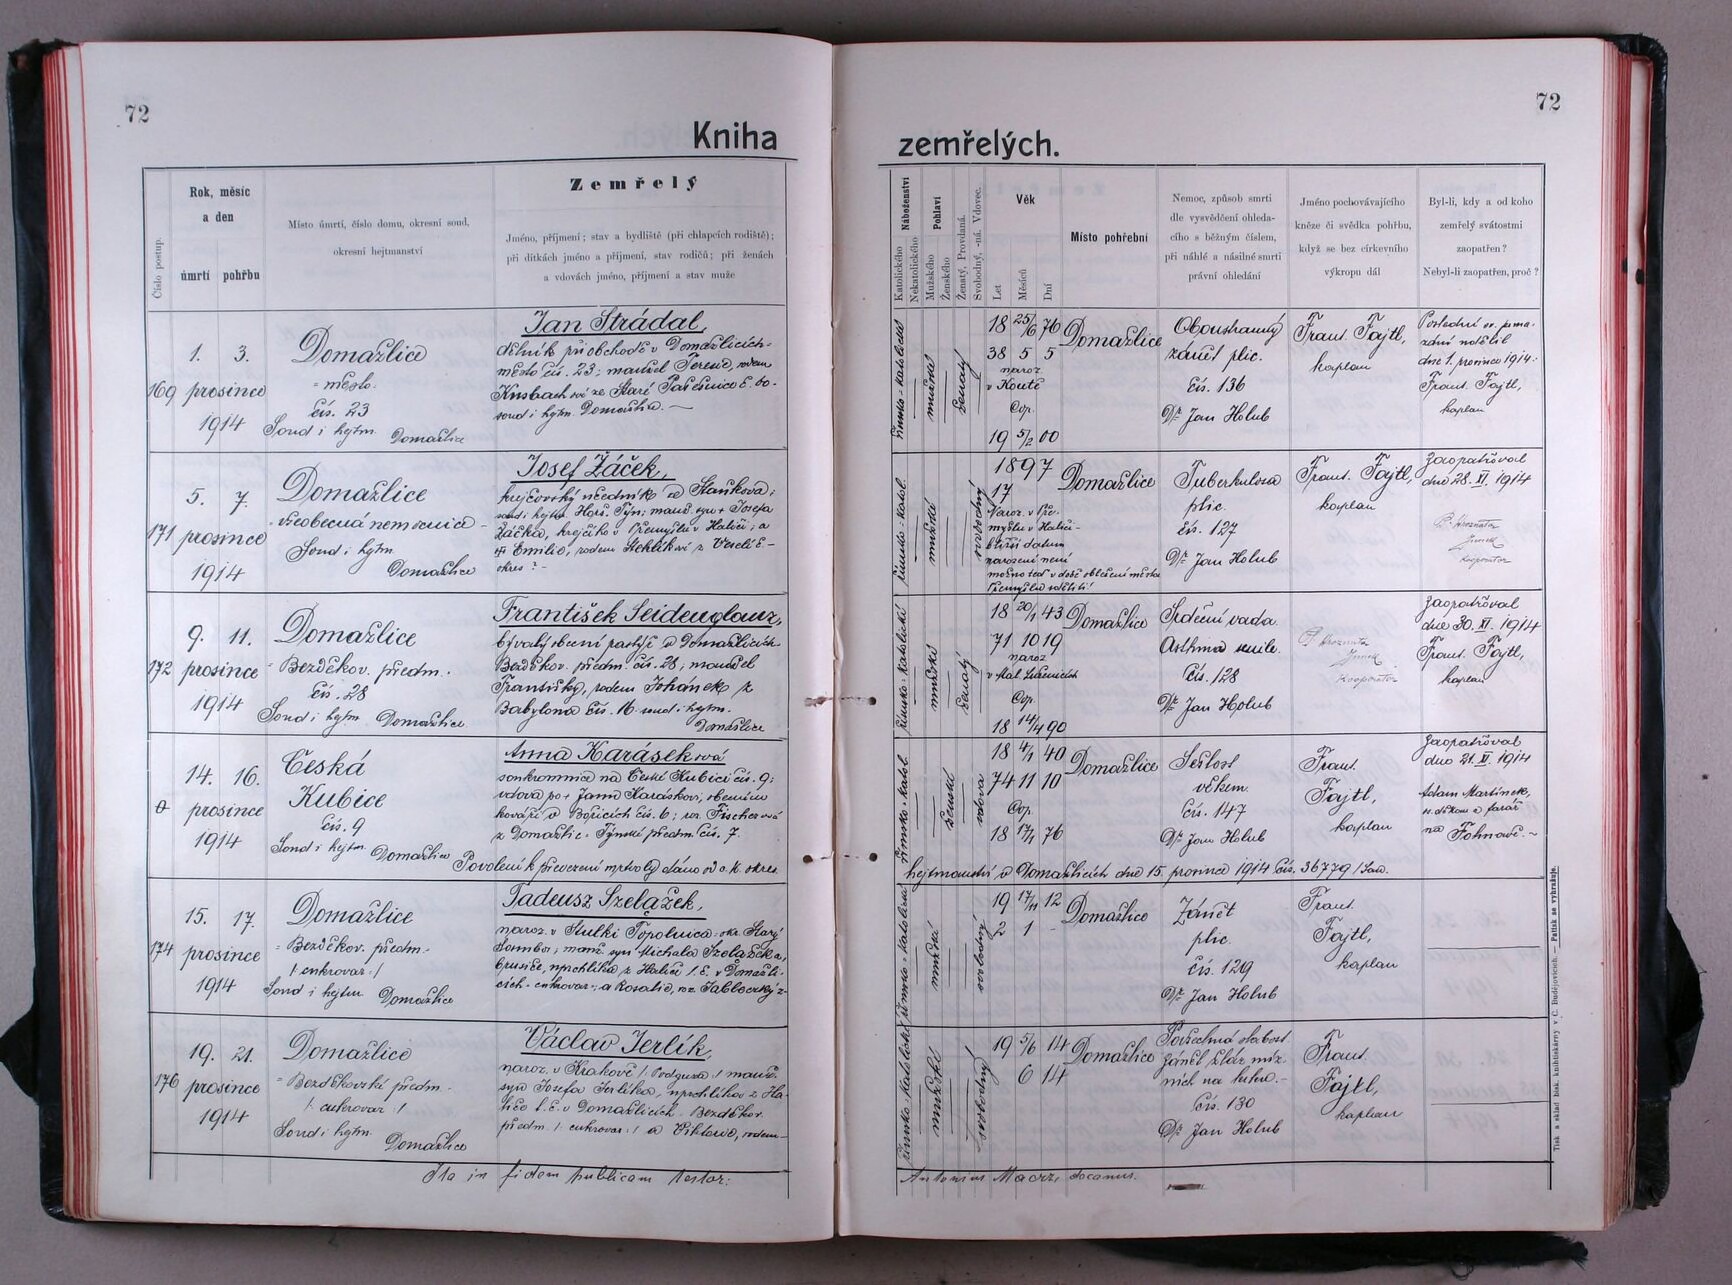 72
Kniha
Číslo postup.
Rok, měsíc
a den
úmrtí pohřbu
Místo úmrtí, číslo domu, okresní soud,
okresní hejtmanství
Zemřelý
Jméno, příjmení; stav a bydliště (při chlapcích rodiště);
při dítkách jméno a příjmení, stav rodičů; při ženách
a vdovách jméno, příjmení a stav muže
169
1. 3.
prosince
1914
Domažlice
- město.
čís. 23
Soud i hejtm. Domažlice
Jan Strádal,
dělník při obchodě v Domažlicích-
město čís. 23; manžel Terezie, rozem
ze Staré
soud i hejtm. Domažlice. —
171
5. 7.
prosince
1914
Domažlice
všeobecná nemocnice -
Soud i hejtm
Domažlice
Josef Žáček,
krejčovský z Staňkova;
soud i hejtm. Horš. Týn; manž. syn + Josefa
Žáčka, krejčího v Přemyšlu v Haliči; a
Emilie, rozem
okres? -
172
9. 11.
prosince
1914
Domažlice
- Bezděkov. předm.
čís. 28
Soud i hejtm. Domažlice.
František Seidenglanz,
bývalý obecní pastýř v Domažlicích-
Bezděkov. předm. čís. 28; manžel
Františky, rodem Johánek z
Babylona čís. 16. soud i hejtm.
Domažlice
0
14. 16.
prosince
1914
Česká
Kubice
čís. 9
Soud i hejtm. Domažlice
Anna Karáseková
soukromnice na České Kubici čís. 9;
vdova po + Janu Karáskovi, obecním
kováři v Bořicích čís. 6; roz. Fischerová
z Domažlic - Týnské předm. čís. 7.
Povolení k převezení mrtvoly dáno od c. k. okres.
174
15. 17.
prosince
1914
Domažlice
- Bezděkov. předm.-
/: cukrovar :/
Soud i hejtm Domažlice
Tadeusz Szelążek,
naroz. v Topolnica- okr. Starý
Sambor; manž. syn Michala Szelążeka,
brusiče, uprchlíka z Haliče t. č. v Domažli-
cích - cukrovar -; a Rosalie, roz.
176
19. 21.
prosince
1914
Domažlice
- Bezděkovské předm.-
/: cukrovar :/
Soud i hejtm.
Domažlice
Václav Jerlík,
naroz. v Krakově / Podguza :/ manž.
syn Josefa Jerlíka, uprchlíka z Ha-
liče t. č. v Domažlicích - Bezděkov.
předm. /: cukrovar :/ a Viktorie, rodem -
Ita in fidem publicam testor:
72
zemřelých.
Náboženství
Katolického
Nekatolického
Pohlaví
Mužského
Ženského
Ženatý, Provdaná.
Svobodný, -ná. Vdovec.
Věk
Let
Měsíců
Dní
Místo pohřební
Nemoc, způsob smrti
dle vysvědčení ohleda-
cího s běžným číslem,
při náhlé a násilné smrti
právní ohledání
Jméno pochovávajícího
kněze či svědka pohřbu,
když se bez církevního
výkropu dál
Byl-li, kdy a od koho
zemřelý svátostmi
zaopatřen?
Nebyl-li zaopatřen, proč?
římsko-katolické
mužské
ženatý
18 25/6 76
38 5 5
naroz.
v Koutě
Cop.
19 5/2 00
Domažlice
Oboustranný
zánět plic.
čís. 136
Dr. Jan Holub
Frant. Fajtl,
kaplan
Poslední sv. poma-
zání udělil
dne 1. prosince 1914:
Frant. Fajtl,
kaplan
římsko-katol.
mužské
svobodný
1897
17
Naroz. v Pře-
myšlu v Haliči -
bližší datum
narození není
možno teď v době obležení města
Přemyšlu zjistiti
Domažlice
Tuberkulosa
plic.
čís. 127
Dr. Jan Holub
Frant. Fajtl,
kaplan
Zaopatřoval
dne 28. XI. 1914
kooperator
římsko-katolické
mužské
ženatý
18 20/1 43
71 10 19
naroz
v Mal.
Cop.
18 14/4 90
Domažlice
Srdeční vada.
Asthma senile.
čís. 128
Dr. Jan Holub
Kooperator
Zaopatřoval
dne 30. XI. 1914
Frant. Fajtl,
kaplan
římsko-katol.
ženské
vdova
18 4/1 40
74 11 10
Cop.
18 17/1 76
Domažlice
Sešlost
věkem.
čís. 147
Dr. Jan Holub
Frant.
Fajtl,
kaplan
Zaopatřoval
dne 21. XI. 1914
Adam Martínek,
a farář
na Folmavě. -
hejtmanství v Domažlicích dne 15. prosince 1914 čís. 36779 /San.
římsko-katolické
mužské
svobodný
19 17/11 12
2 1 -
Domažlice
Zánět
plic.
čís. 129
Dr. Jan Holub
Frant.
Fajtl,
kaplan
římsko-katolické
mužské
svobodný
19 5/6 14
6 14
Domažlice
Povšechná slabost.
Zánět žláz míz-
ních na krku.-
čís. 130
Dr. Jan Holub
Frant.
Fajtl,
kaplan
Antonius decanus.
Tisk a sklad bisk. knihtiskárny v Č. Budějovicích. — Patisk se vyhražuje.